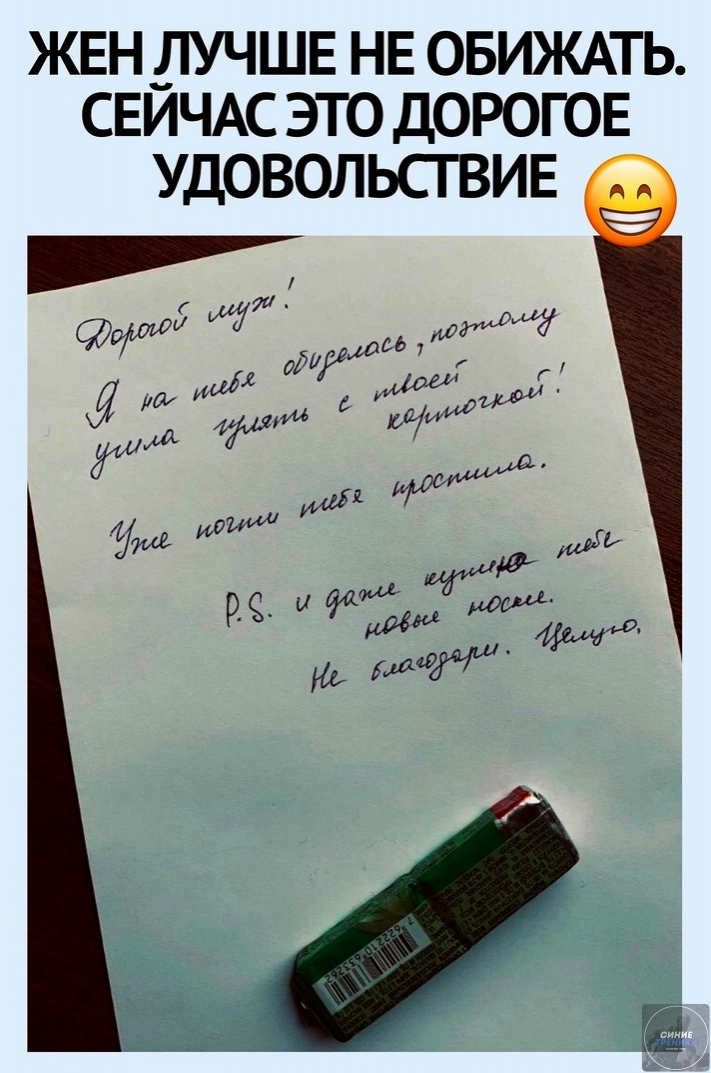 ЖЕН ЛУЧШЕ НЕ ОБИЖАТЬ.
СЕЙЧАС ЭТО ДОРОГОЕ
УДОВОЛЬСТВИЕ
Дорогой муж!
Я на тебя обиделась, поэтому
ушла гулять с твоей
карточкой!
Уже почти тебя простила.
P.S. и даже купила тебе
новые носки.
Не благодари. Целую.
7622210633262
СИНИЕ
ТРЕНИКИ